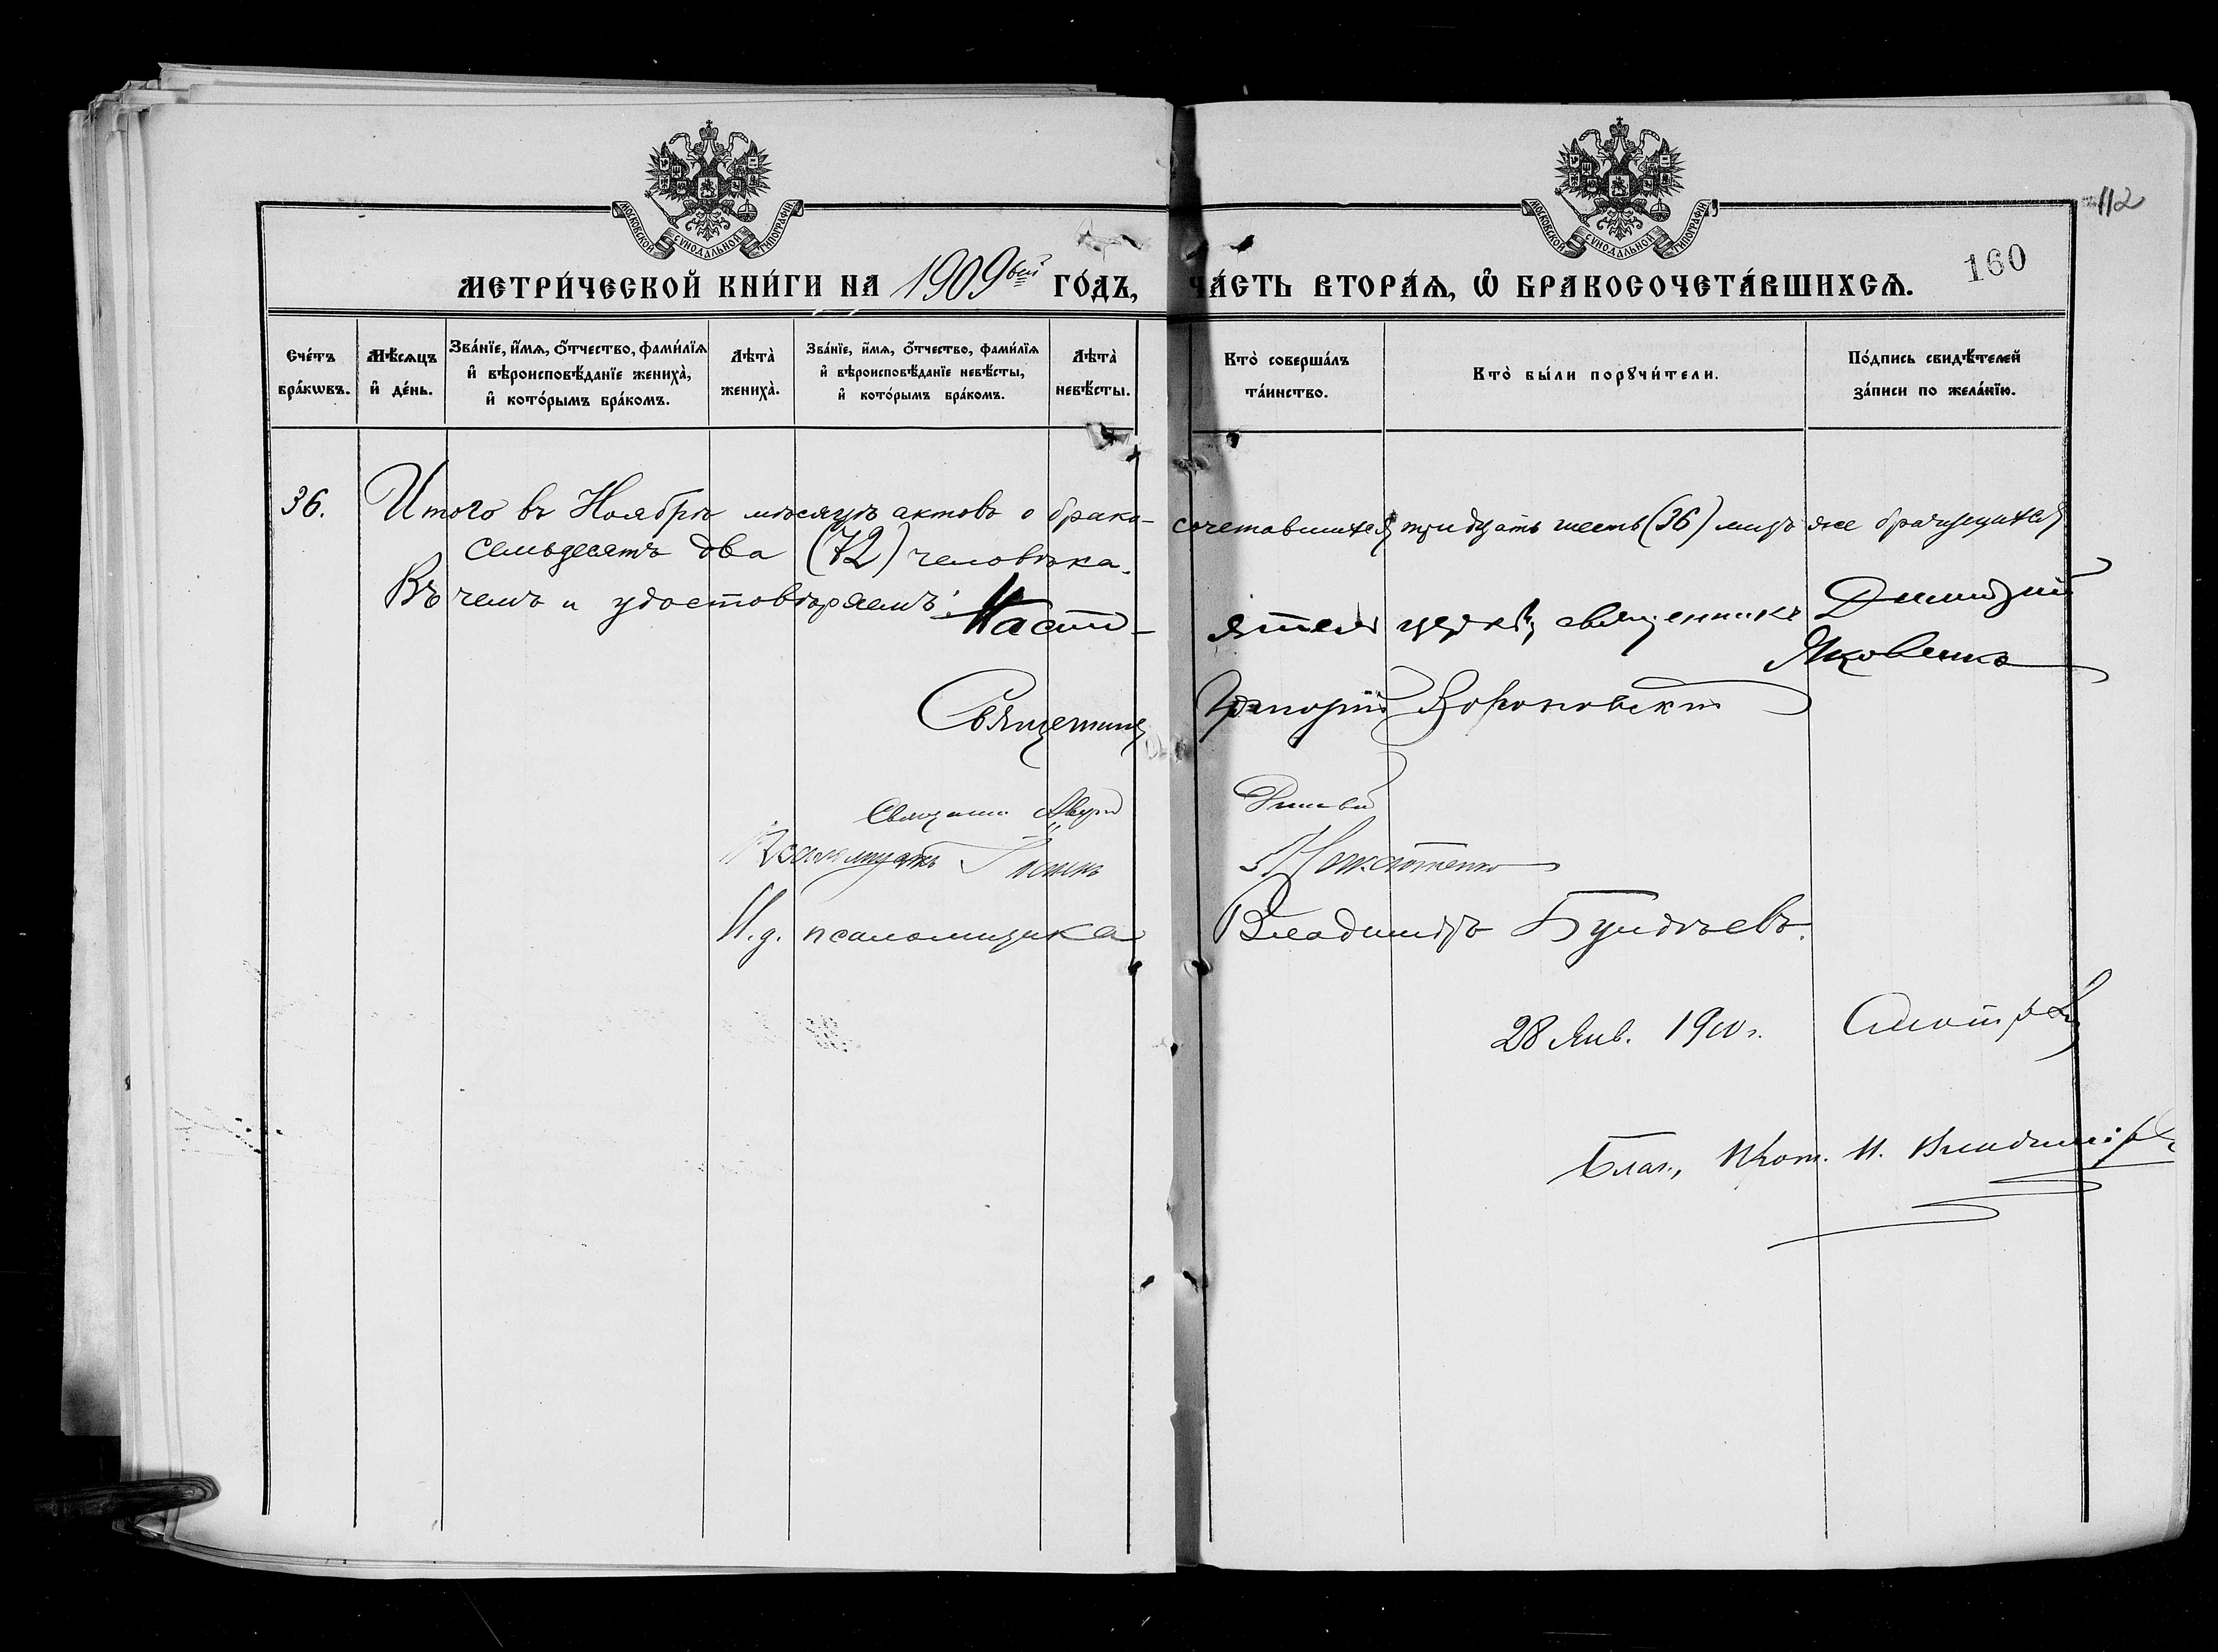 МОСКОВСКОЙ СѴНОДАЛЬНОЙ ТИПОГРАФІИ
МОСКОВСКОЙ СѴНОДАЛЬНОЙ ТИПОГРАФІИ
112
160
МЕТРИ́ЧЕСКОЙ КНИ́ГИ НА 1909ый ГО́ДЪ, ЧА́СТЬ ВТОРА́Ѧ, Ѡ҆ БРАКОСОЧЕТА́ВШИХСѦ.
Сче́тъ бра́кѡвъ.
Мѣ́сѧцъ и҆ де́нь.
Зва́нїе, и҆́мѧ, ѻ҆́тчество, фами́лїѧ и҆ вѣроисповѣ́данїе жениха̀, и҆ кото́рымъ бра́комъ.
Лѣта̀ жениха̀.
Зва́нїе, и҆́мѧ, ѻ҆́тчество, фами́лїѧ и҆ вѣроисповѣ́данїе невѣ́сты, и҆ кото́рымъ бра́комъ.
Лѣта̀ невѣ́сты.
Кто̀ соверша́лъ та́инство.
Кто̀ бы́ли порꙋчи́тели.
По́дпись свидѣ́телей за́писи по жела́нїю.
36. Итого въ Ноябрѣ мѣсяцѣ актовъ о брако-сочетавшихся тридцать шесть (36) лицъ же брачущихся
семьдесятъ два (72) человѣка.
Въ чемъ и удостовѣряемъ: Насто-ятель церкви, священникъ Димитрій
Яковенко
Священникъ Григорій
Священ.
Псаломщикъ
И. д. псаломщика Владиміръ
28 Янв. 1910 г. Смотр.
Благ., Прот. И.